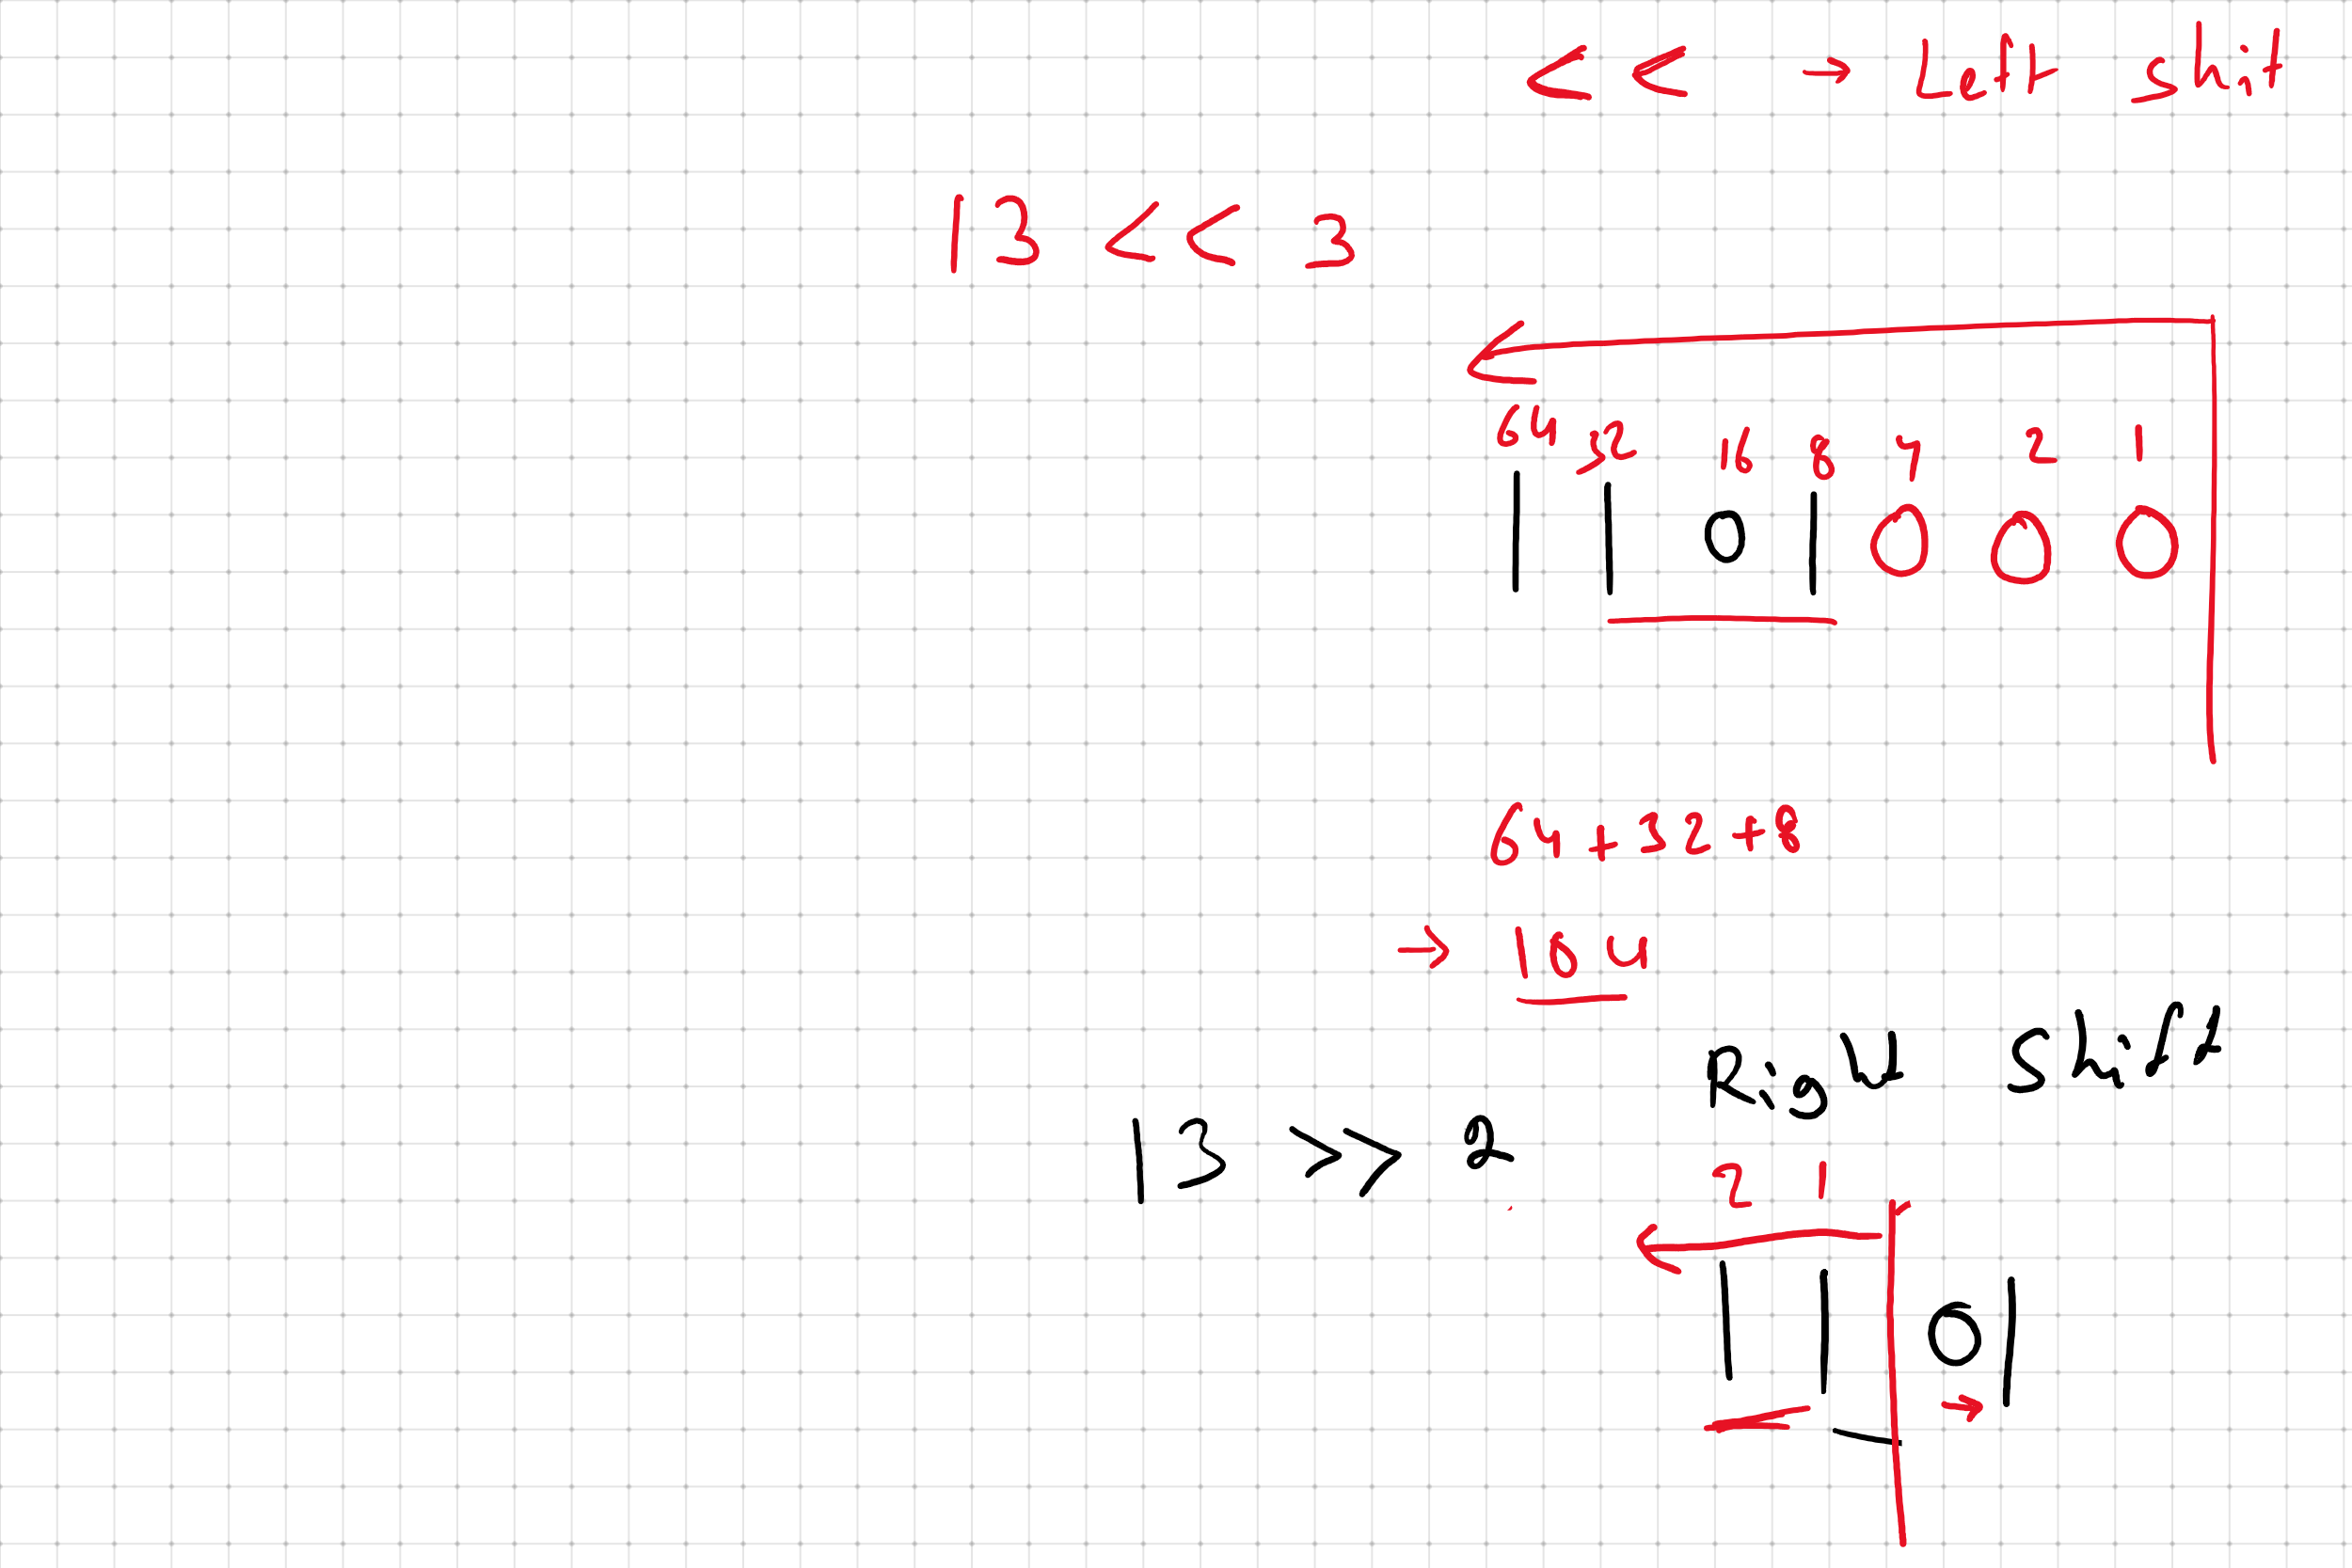 << → Left shit
13 << 3
64 32 16 8 4 2 1
1 1 0 1 0 0 0
64+32+8
→ 104
Right Shift
13 >> 2
2 1
1 1 0 1